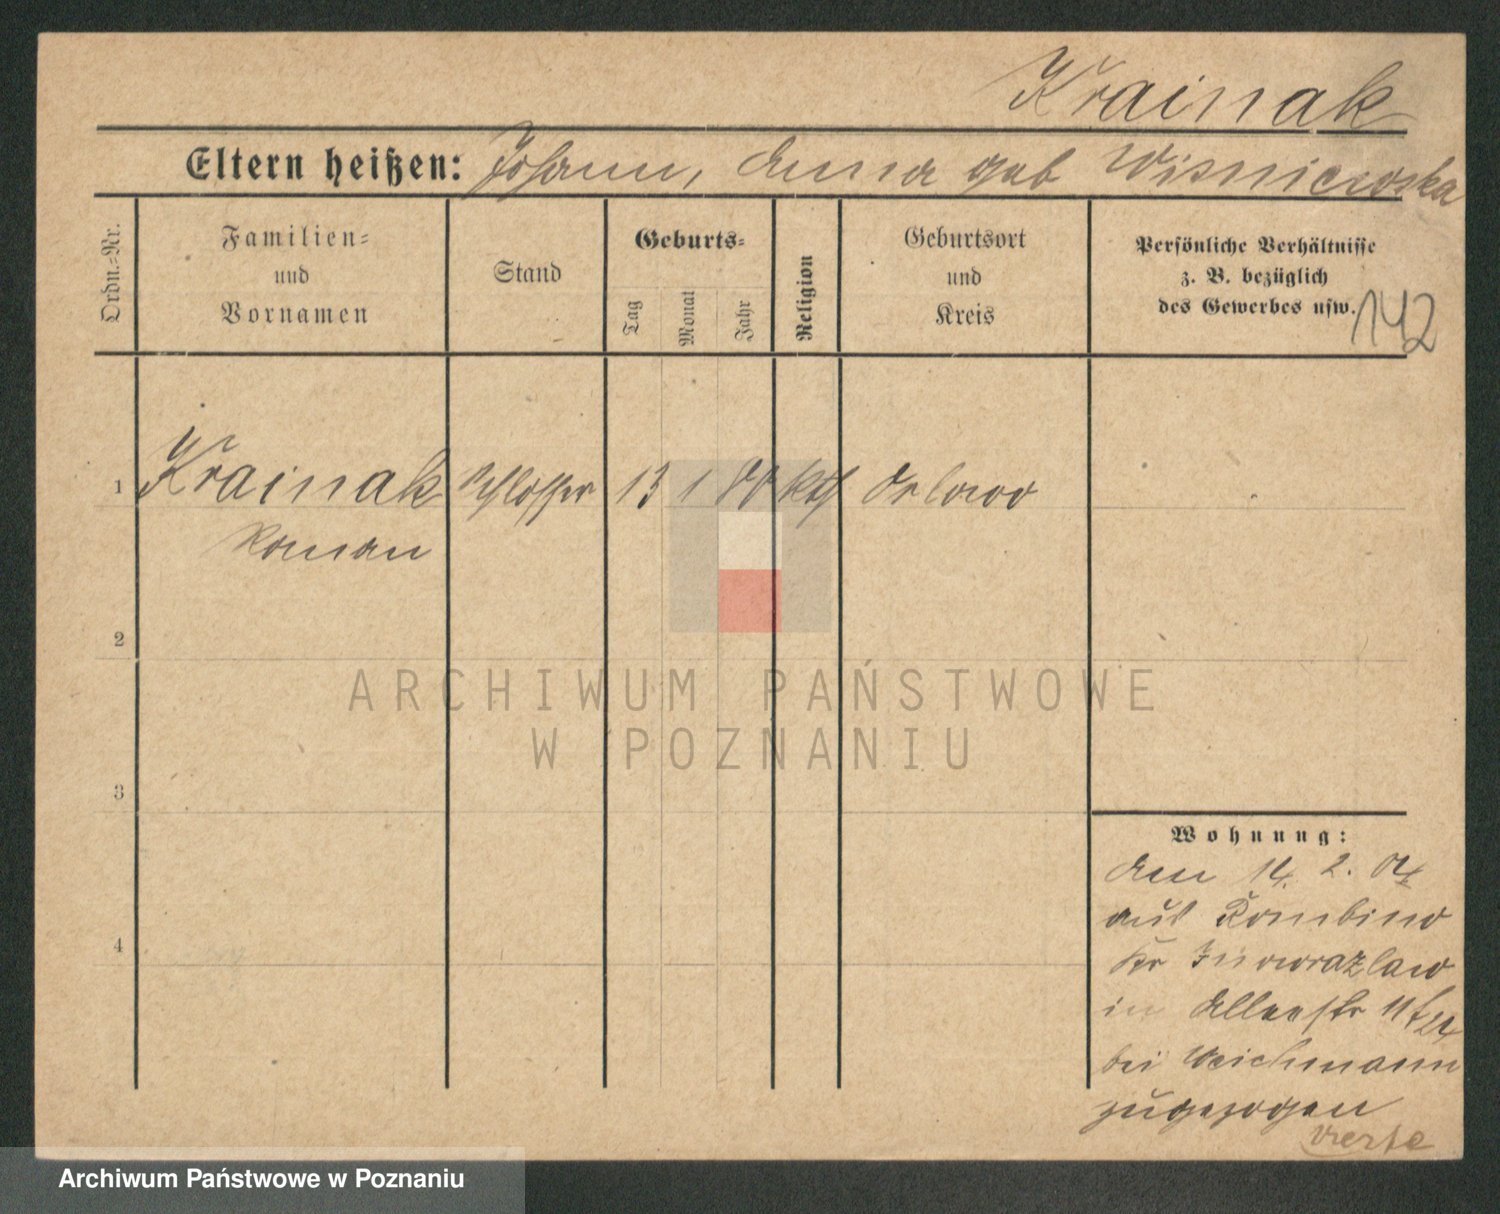 Krainak
Eltern heißen: Johann, Anna geb Wisniewska
Ordn.-Nr.
Familien-
und
Vornamen
Stand
Geburts-
Tag
Monat
Jahr
Religion
Geburtsort
und
Kreis
Persönliche Verhältnisse
z. B. bezüglich
des Gewerbes usw.
142
1 Krainak Schlosser 13 1 80 kth Orlowo
Roman
2
3
4
Wohnung:
den 14. 2. 04
aus Kombino
Kr Inowrazlaw
in Alleestr 11
bei Weichmann
zugezogen
ARCHIWUM PAŃSTWOWE
W POZNANIU
Archiwum Państwowe w Poznaniu